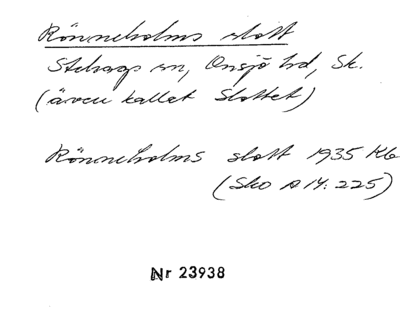 Rönneholms slott
Stehags sn, Onsjö hd, Sk.
(även kallat Slottet)
Rönneholms slott 1935 Kb
(Sko A 14:225)
Nr 23938